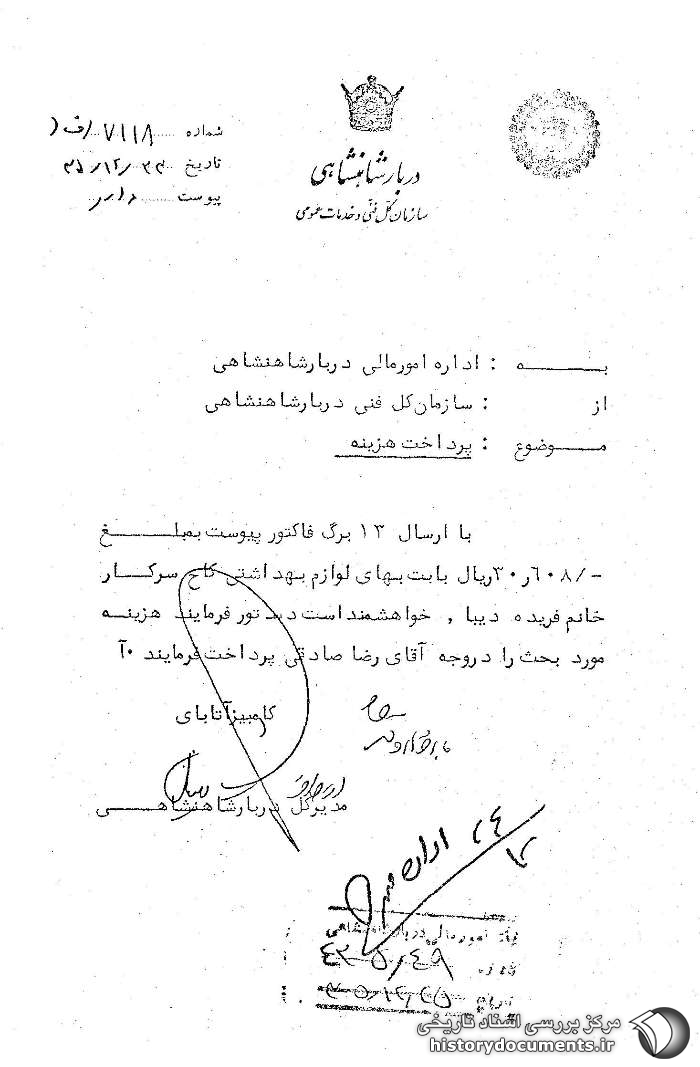 شماره ۷۱۱۸/ف
تاریخ ۳۵/۱۲/۲۳
پیوست دارد
دربار شاهنشاهی
سازمان کل فنی و خدمات عمومی
بـــه : اداره امورمالی دربارشاهنشاهی
از : سازمان‌کل فنی دربارشاهنشاهی
مـوضوع : پرداخت هزینه
با ارسال ۱۳ برگ فاکتور پیوست بمبلـــغ
-/۳۰ر۶۰۸ ریال بابت بهای لوازم بهداشتی کاخ سرکـار
خانم فریده دیبا , خواهشمنداست دستور فرمایند هزینـه
مورد بحث را دروجه آقای رضا صادقی پرداخت‌فرمایند ۰آ
کامبیزآتابای
مدیرکل دربارشاهنشاهـــی
امورمالی دربارشاهنشاهی
۴۳۵۰۴۹
تاریخ ۳۵/۱۲/۲۵
مرکز بررسی اسناد تاریخی
historydocuments.ir